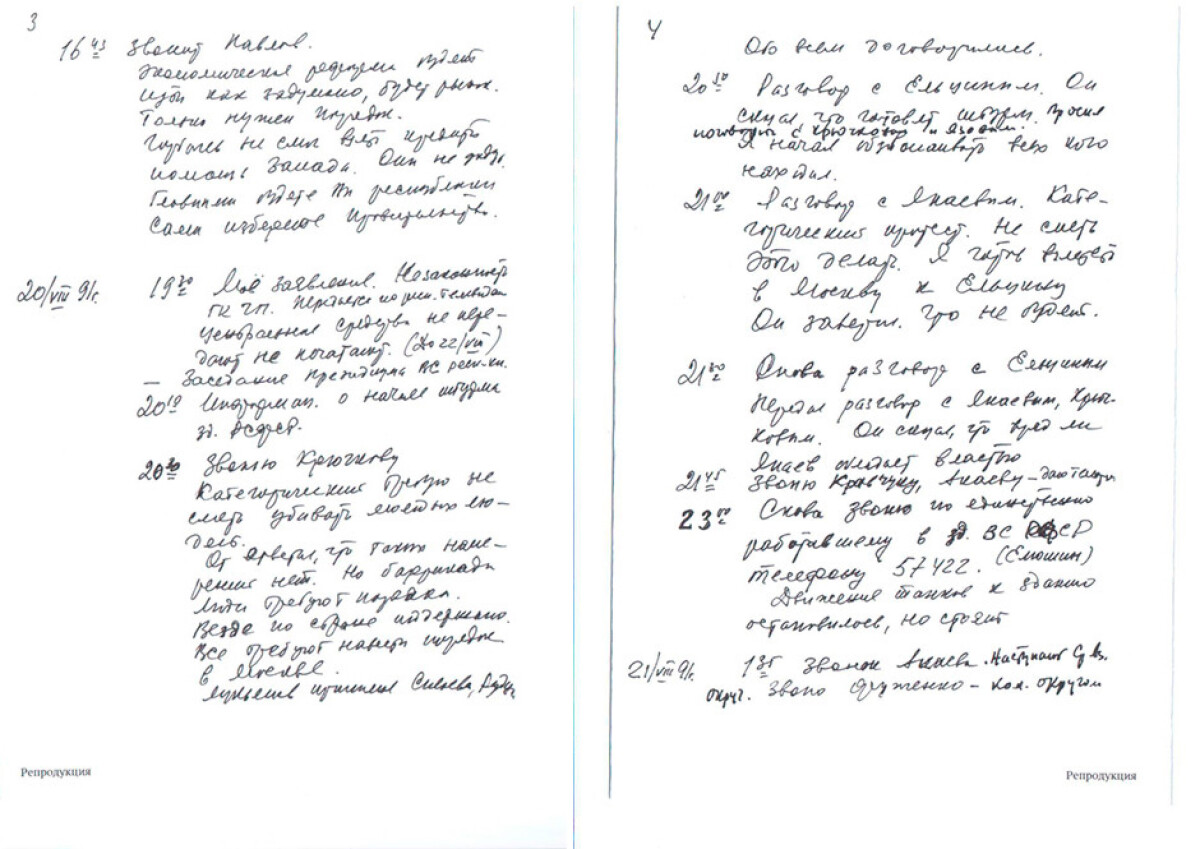 3
16 43 Звонит Павлов.
Экономическая реформа будет
идти как задумано, будет рынок.
Только нужен порядок.
Горбачев не смог взять кредиты
помощь Запада. Они не дадут.
Главными будете Вы республики
Сами изберете правительство.
20/VIII 91г. 19 30 Моё заявление. Незаконность
ГКЧП. Передается по телевид
Центральные средства не пере-
дают не печатают. (До 22/VIII)
— Заседание Президиума ВС респ-ки.
20 10 Информац. о начале штурма
зд. РСФСР.
20 30 Звоню Крючкову
Категорически требую не
сметь убивать людей.
Он ответил, что таких наме-
рений нет. Но баррикады
Люди требуют порядка.
Везде по стране поддержано.
Все требуют навести порядок
в Москве.
Лукьянов Силаева,
Репродукция
4
Обо всем договорились.
20 50 Разговор с Ельциным. Он
сказал, что готовят штурм. Просил
поговорить с Крючковым и Язовым.
Я начал обзванивать всех кого
находил.
21 00 Разговор с Янаевым. Кате-
горический протест. Не сметь
этого делать. Я готов вылететь
в Москву к Ельцину
Он заверил. Что не будет.
21 30 Снова разговор с Ельциным
Передал разговор с Янаевым, Крюч-
ковым. Он сказал, что вряд ли
Янаев обладает властью
21 45 Звоню Кравчуку, Акаеву –
23 00 Снова звоню по единственно
работавшему в зд. ВС РСФСР
телефону 57422. (Елюшин)
Движение танков к зданию
остановилось, но стоят
21/VIII 91г. 1 35 Звонок Акаева. Наступают Ср. Аз.
округ. Звоню Фуженко – ком. округом
Репродукция